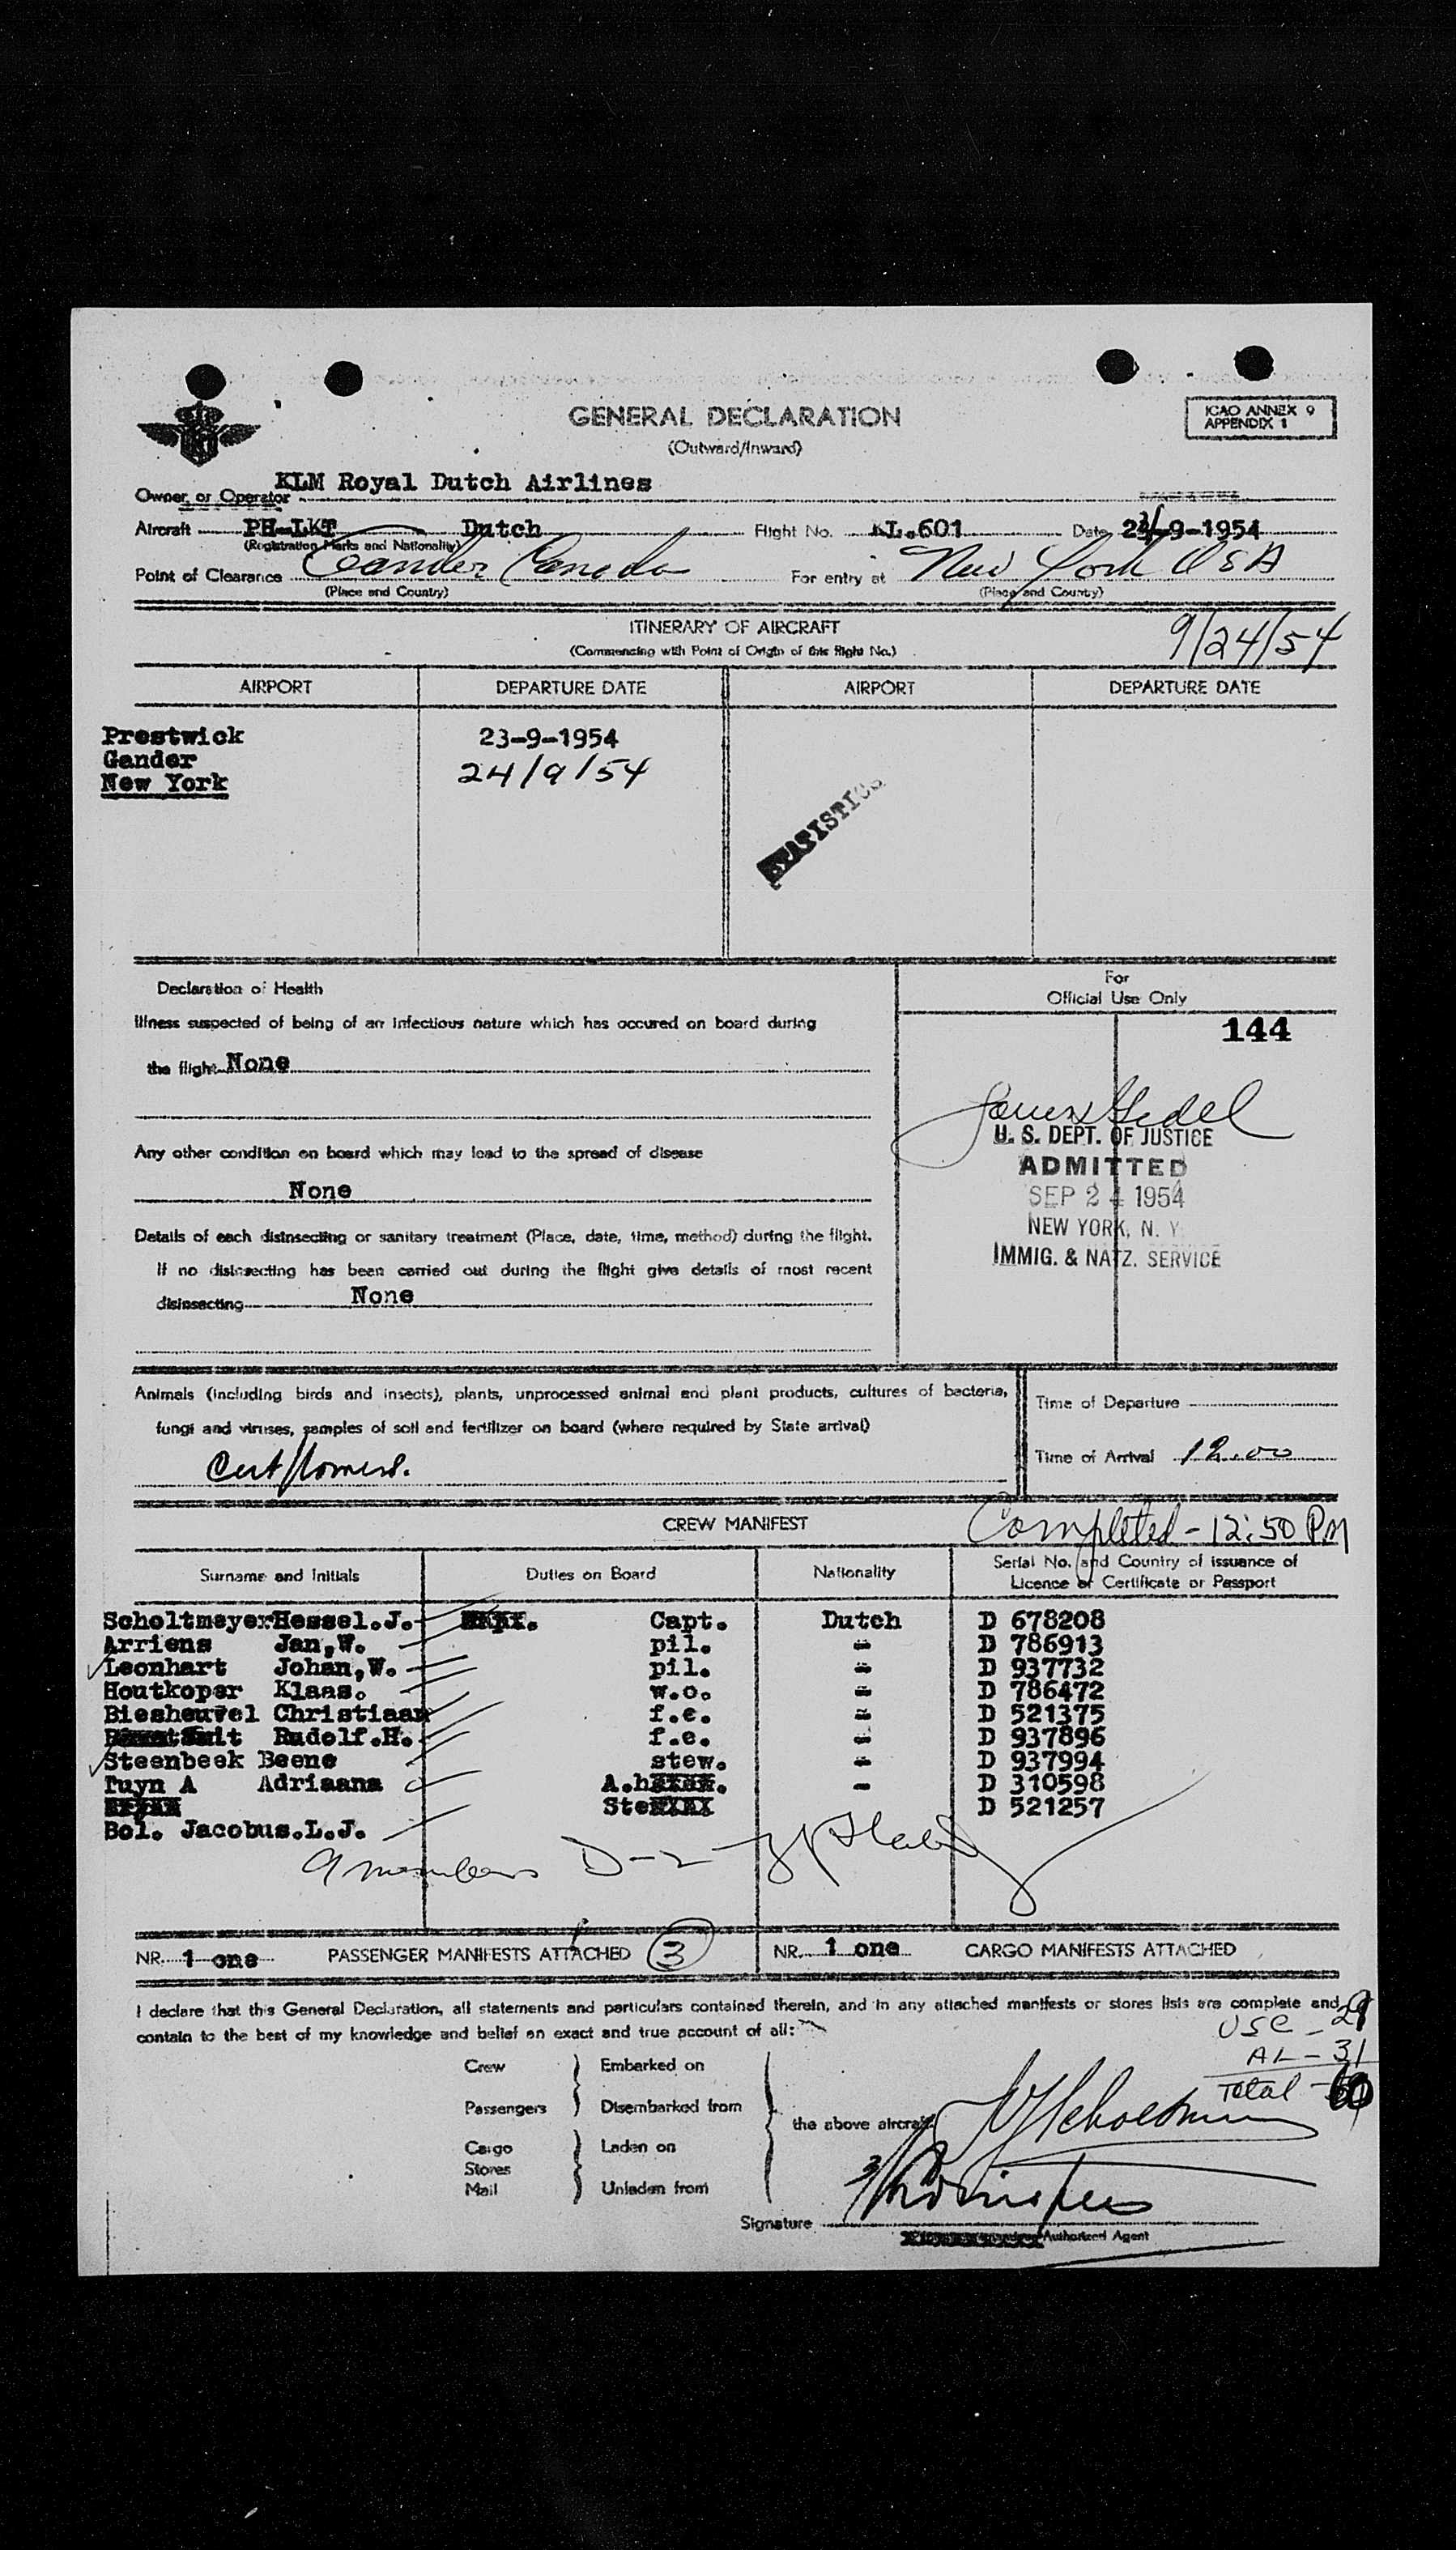 GENERAL DECLARATION
(Outward/Inward)
ICAO ANNEX 9
APPENDIX 1
Owner or Operator KLM Royal Dutch Airlines
Aircraft PH-LKT Dutch Flight No. KL.601 Date 24-9-1954
(Registration Marks and Nationality)
Point of Clearance Gander Canada For entry at New York USA
(Place and Country) (Place and County)
ITINERARY OF AIRCRAFT
(Commencing with Point of Origin of this flight No.)
9/24/54
AIRPORT DEPARTURE DATE AIRPORT DEPARTURE DATE
Prestwick 23-9-1954
Gander 24/9/54
New York
STATISTICS
Declaration of Health
For
Official Use Only
Illness suspected of being of an infectious nature which has occured on board during
144
the flight None
U. S. DEPT. OF JUSTICE
Any other condition on board which may lead to the spread of disease
ADMITTED
None
SEP 24 1954
NEW YORK, N. Y.
Details of each disinsecting or sanitary treatment (Place, date, time, method) during the flight.
IMMIG. & NATZ. SERVICE
If no disinsecting has been carried out during the flight give details of most recent
disinsecting None
Animals (including birds and insects), plants, unprocessed animal and plant products, cultures of bacteria,
Time of Departure
fungi and viruses, samples of soil and fertilizer on board (where required by State arrival)
Cut flowers.
Time of Arrival 12.00
CREW MANIFEST
Completed - 12:50 PM
Surname and Initials Duties on Board Nationality Serial No. and Country of issuance of
Licence or Certificate or Passport
ScholtmeyerHessel.J. Capt. Dutch D 678208
Arriens Jan,W. pil. " D 786913
Leonhart Johan,W. pil. " D 937732
Houtkoper Klaas. w.o. " D 786472
Biesheuvel Christiaan f.e. " D 521375
Smit Rudolf.H. f.e. " D 937896
Steenbeek Beene stew. " D 937994
Tuyn A Adriaana A.h " D 310598
Ste D 521257
Bol. Jacobus.L.J.
9 members D-2
NR. 1 one PASSENGER MANIFESTS ATTACHED 3 NR. 1 one CARGO MANIFESTS ATTACHED
I declare that this General Declaration, all statements and particulars contained therein, and in any attached manifests or stores lists are complete and
contain to the best of my knowledge and belief an exact and true account of all:
USC - 29
AL - 31
Total - 60
Crew Embarked on
Passengers Disembarked from
the above aircraft
Cargo Laden on
Stores
Mail Unladen from
Signature
Authorized Agent